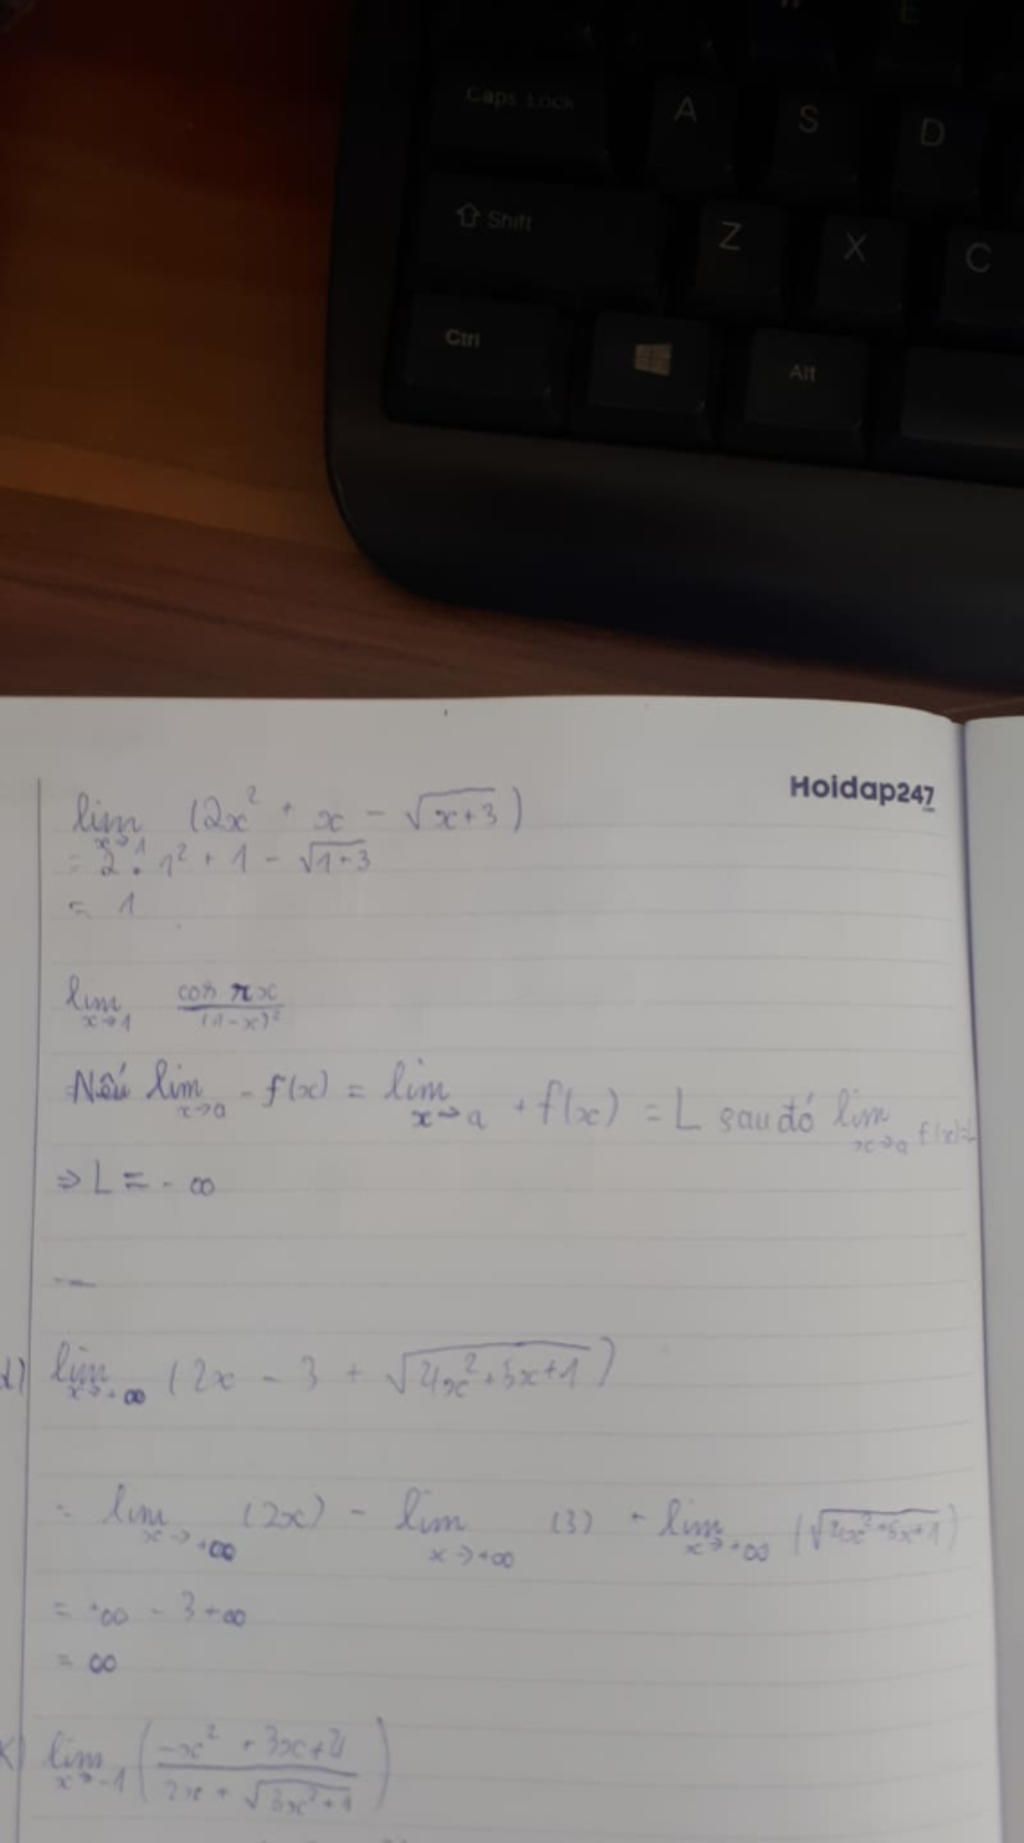 E
Caps Lock A S D
Shift Z X C
Ctrl Alt
Hoidap247
lim x→1 (2x² + x - √(x+3))
= 2 . 1² + 1 - √(1+3)
= 1
lim x→1 cos πx / (1-x)²
Nếu lim x→a - f(x) = lim x→a + f(x) = L sau đó lim x→a f(x)=L
⇒ L = - ∞
d) lim x→+∞ (2x - 3 + √(4x²+5x+1))
= lim x→+∞ (2x) - lim x→+∞ (3) + lim x→+∞ (√(4x²+5x+1))
= +∞ - 3 +∞
= ∞
k) lim x→-1 ((-x² + 3x+4) / (2x + √(3x²+1)))